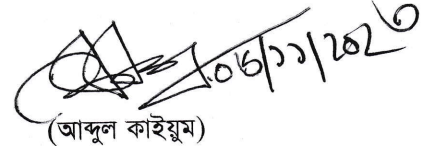 ০৬/১১/২০২৩
(আব্দুল কাইয়ুম)